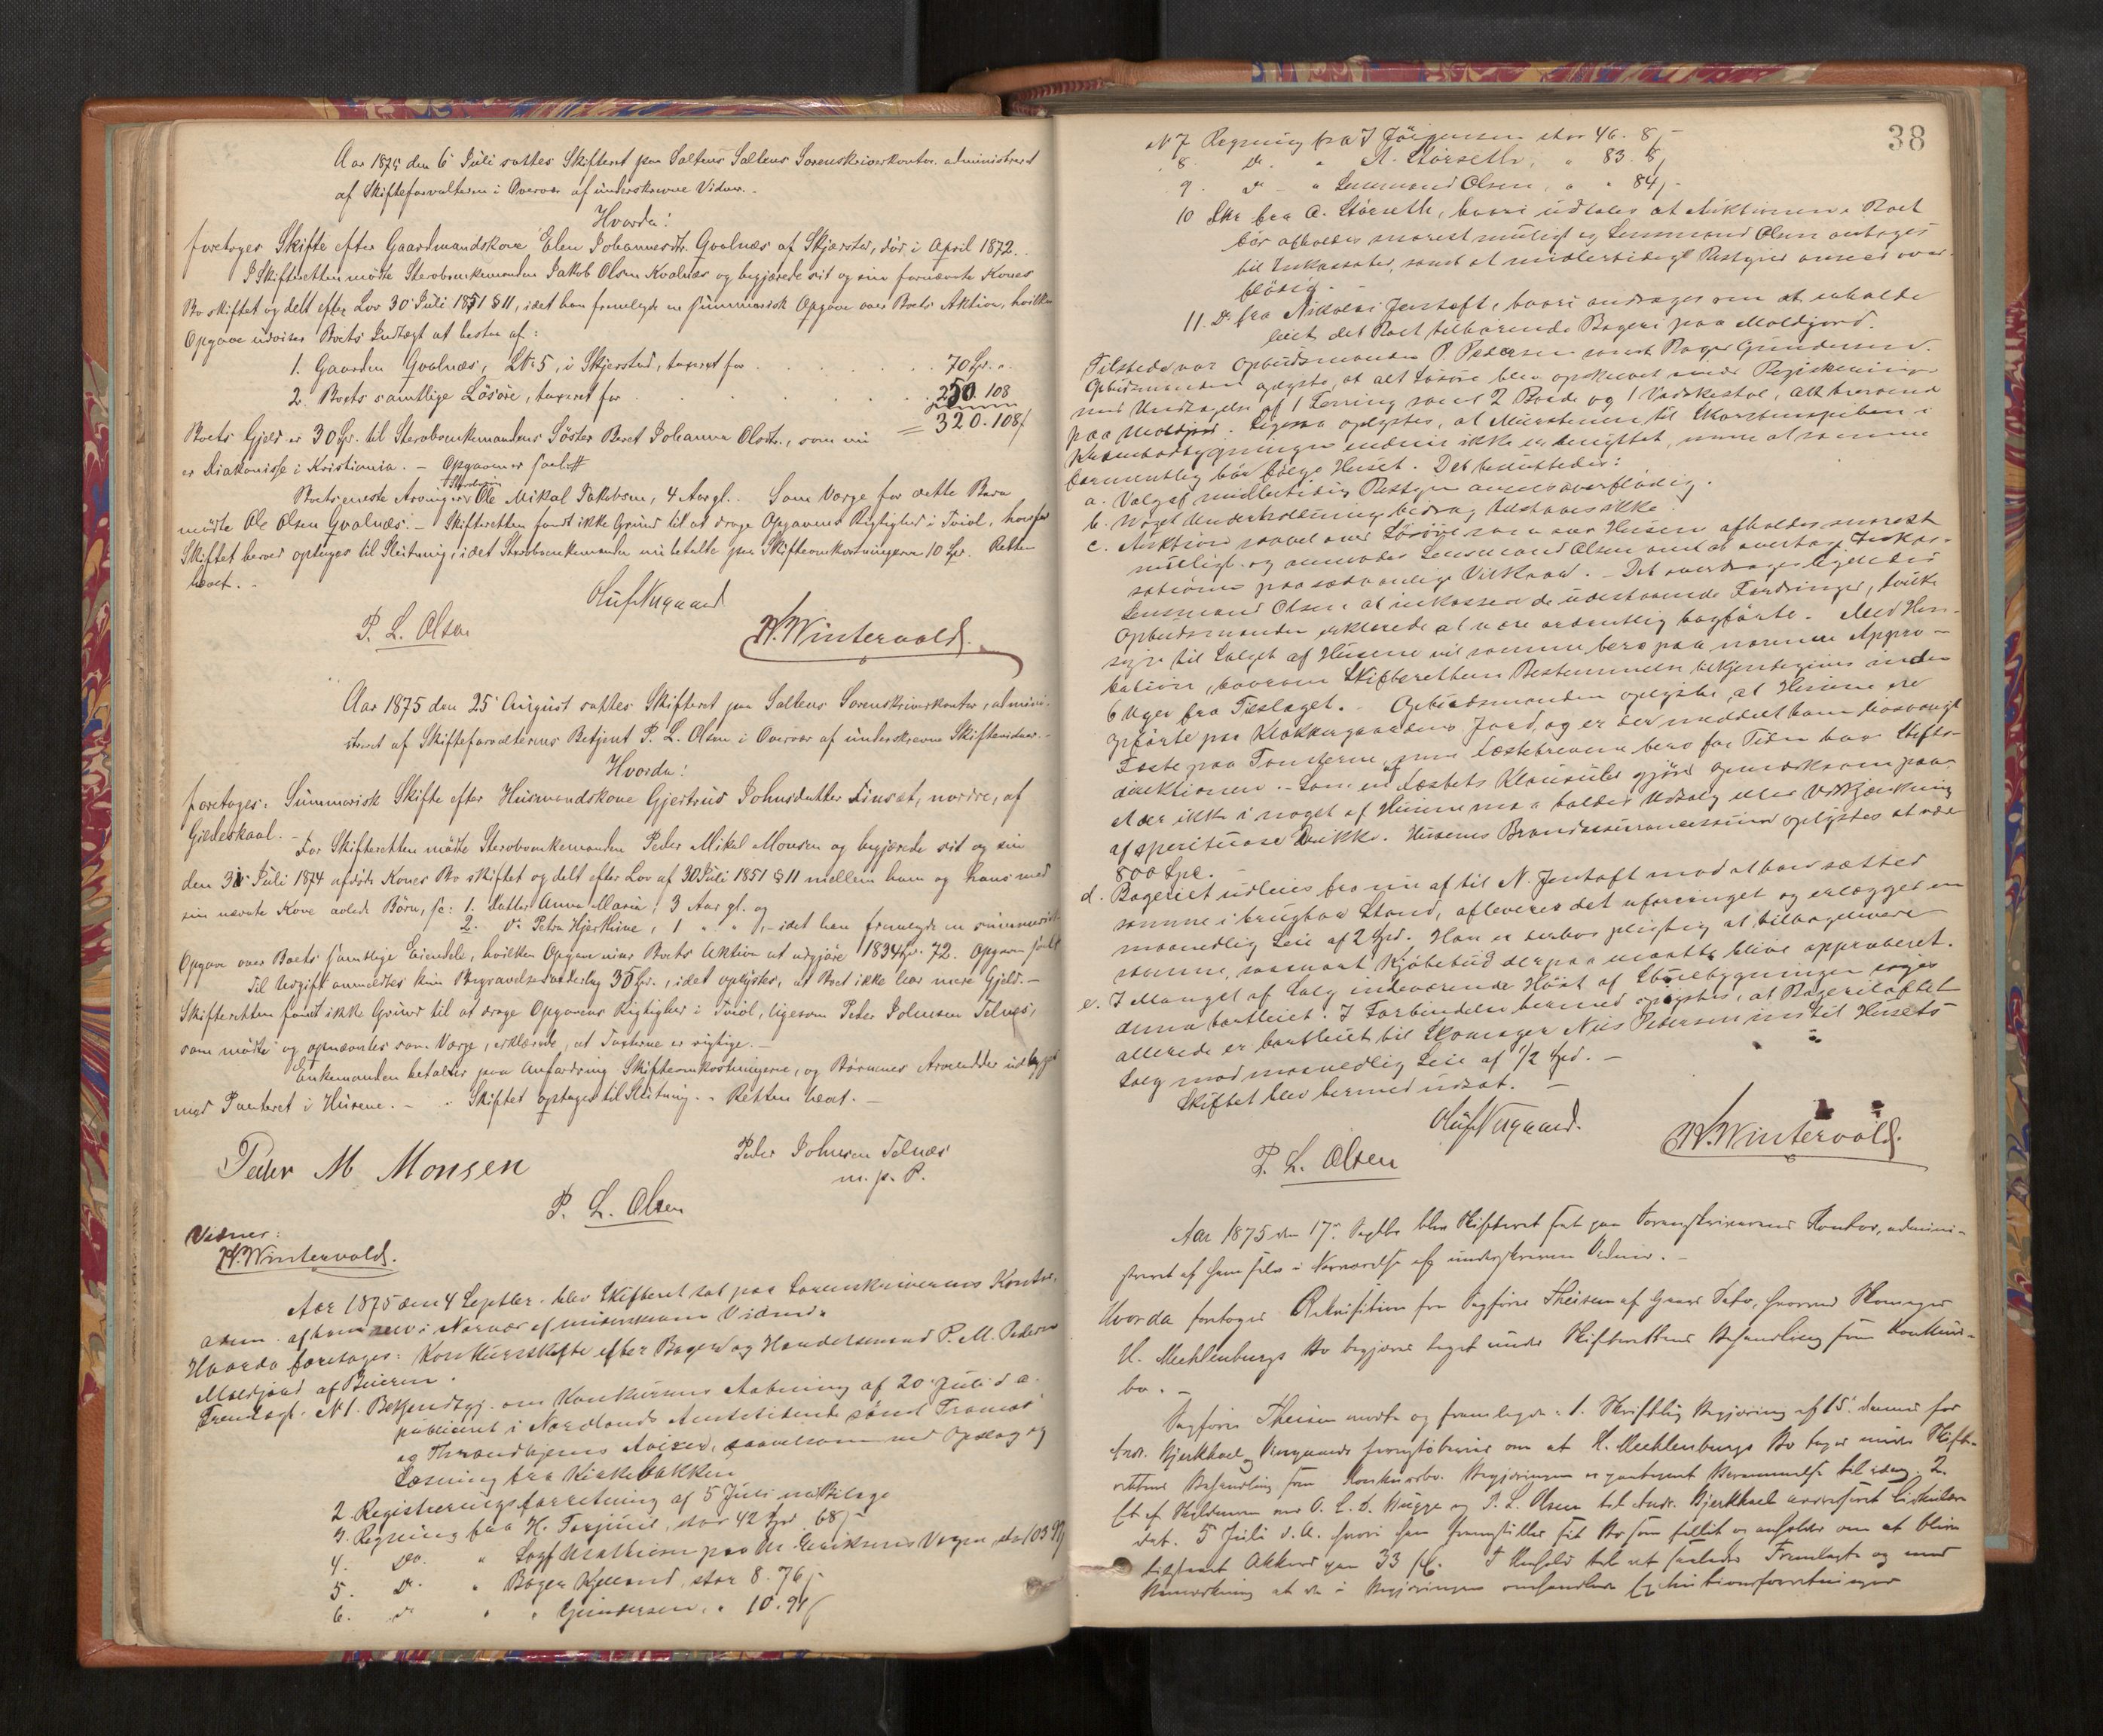 Aar 1875 den 6 Juli sattes Skifteret paa Saltens Saltens Sorenskriverkontor, administreret
af Skifteforvalteren i Overvær af underskrevne Vidner.
Hvorda:
foretoges Skifte efter Gaardmandskone Elen Johannesdtr. Qvalnæs af Skjærstad, død i April 1872.
I Skifteretten mødte Sterboenkemanden Jakob Olsen Kvalnæs og begjærede sit og sin fornævnte Kones
Bo skiftet og delt efter Lov 30 Juli 1851 § 11, idet han fremlagde en summarisk Opgave over Boets Aktiva, hvilken
Opgave udviser Boets Indtægt at bestaa af:
1. Gaarden Qvalnæs, LN 5, i Skjerstad, taxeret for . . . 70 Spd. "
2. Boets samtlige Løsøre, taxeret for . . . 250. 108
= 320. 108
Boets Gjeld er 30 Spd. til Sterboenkemandens Søster Beret Johanna Olsdtr., som nu
er Diakonisse i Kristiania. – Opgaven er
Boets eneste Arving er Ole Mikal Jakobsen, 4 Aar gl. Som Værge for dette Barn
mødte Ole Olsen Qvalnæs. – Skifteretten fandt ikke Grund til at drage Opgavens Rigtighed i Tvivl, hvorfor
Skiftet herved optages til Slutning, idet Sterboenkemanden nu betalte paa Skifteomkostningerne 10 Spd. Retten
hævet. –
Oluf Nygaard
P. L. Olsen
W. Wintervold.
Aar 1875 den 25 August sattes Skifteret paa Saltens Sorenskriverkontor, admini-
streret af Skifteforvalterens Betjent P. L. Olsen i Overvær af underskrevne Skiftevidner. –
Hvorda:
foretoges: Summarisk Skifte efter Husmandskone Gjertrud Johnsdatter Finset, nordre, af
Gildeskaal. –
For Skifteretten mødte Sterboenkemanden Peder Mikal Monsen og begjærede sit og sin
den 31 Juli 1874 afdøde Kones Bo skiftet og delt efter Lov af 30 Juli 1851 § 11 mellem ham og hans med
sin nævnte Kone avlede Børn, sc: 1. Datter Anna Maria, 3 Aar gl. og
2. do Petra Hjertine, 1 " " , – idet han fremlagde en summarisk
Opgave over Boets samtlige Eiendele, hvilken Opgave viser Boets Aktiva at udgjøre 183 Spd. 72. Opgaven
Til Udgift anmeldtes kun Begravelsesvederlag 35 Spd., idet oplystes, at Boet ikke har mere Gjeld. –
Skifteretten fandt ikke Grund til at drage Opgavens Rigtighed i Tvivl, ligesom Peder Johnsen Telnæs,
som mødte og opnævntes som Værge, erklærede, at Taxterne er rigtige. –
Enkemanden betaler paa Anfordring Skifteomkostningerne, og Børnenes Arvelodder
med Panteret i Husene. – Skiftet optages til Slutning. – Retten hævet. –
Peder M Monsen
Peder Johnsen Telnæs
m. p. P.
P. L. Olsen
Vidner:
W. Wintervold.
Aar 1875 den 4 Septber. blev Skifteret sat paa Sorenskriverens Kontor,
adm. af ham selv i Nærvær af underskrevne Vidner.
Hvorda foretoges: Konkursskifte efter Bager og Handelsmand P. M. Pedersen
Moldjord af Beieren.
Fremlagt: N 1. Bekjendtgj. om Konkursens Aabning af 20 Juli d. a.
publiceret i Nordlands Amtstidende samt Tromsø
og Throndhjems Aviser, saavelsom ved Opslag og
Læsning fra Kirkebakken
2 Registreringsforretning af 5 Juli med Bilage
3. Regning fra H. Torjuul, stor 42 Spd 68
4. Do. " Sagf Mathiesen paa M. Eriksens Vegne, stor 103
5. Do. " Bager Kjelland, stor 8. 76
6. do " " Gundersen, " 10. 91
38
N 7 Regning fra J Jørgensen stor 46. 8
8. do. " A. Størseth, " 83. 8
9. do – " Lensmand Olsen, " " 84
10 Skr fra A. Størseth, hvori udtales at Auktionen i Boet
bør afholdes snarest muligt og Lensmand Olsen antages
til Inkassator, samt at midlertidigt Bestyrer ansees over-
flødig.
11. Do fra Nikolai Jentoft, hvori andrages om at erholde
leiet det Boet tilhørende Bageri paa Moldjord.
Tilstede var Opbudsmanden P. Pedersen samt Bager Gundersen.
Opbudsmanden oplyste, at alt Løsøre blev opskrevet under Registrering-
med Undtagelse af 1 Terring samt 2 Borde og 1 Vadskestol, alt beroende
paa Moldjord. Ligesaa oplystes, at Murstenen til Skorstenspiben i
bygningen endnu ikke er benyttet, men at samme
formentlig bør følge Huset. Det besluttedes:
a. Valg af midlertidig Bestyrer ansees overflødig.
b. Noget Underholdningsbidrag tilstaaes ikke.
c. Auktion saavel over Løsøre som over Husene afholdes snarest
muligt og anmodes Lensmand Olsen om at overtage Inkas-
sationen paa sædvanlige Vilkaar. – Det overdrages ligeledes
Lensmand Olsen at inkassere de udestaaende Fordringer, hvilke
Opbudsmanden erklærede at være ordentlig bogførte. Med Hen-
syn til Salget af Husene vil samme bero paa nærmere Appro-
bation, hvorom Skifterettens Bestemmelse bekjendtgives inden
6 Uger fra Tilslaget. – Opbudsmanden oplyste at Husene ere
opførte paa Klokkergaardens Jord, og er der meddelt ham
Fæste paa Tomterne, men Fæstebrevene bero for Tiden hos Stifts-
direktionen. – Som en af Fæstets Klausuler gjøres opmærksom paa
at der ikke i noget af Husene maa holdes Udsalg eller Udskjænkning
af spirituose Drikke. Husenes Brandassurancessum oplystes at være
800 Spd. –
d. Bageriet udleies fra nu af til N. Jentoft mod at han sætter
samme i brugbar Stand, afleverer det uforringet og erlægger en
maanedlig Leie af 2 Spd. Han er derhos pligtig at tilbagelevere
samme, saasnart Kjøbebud derpaa maatte blive approberet.
e. I Mangel af Salg indeværende Høst af bygningen søges
denne bortleiet. I Forbindelse hermed oplystes, at Bageriloftet
allerede er bortleiet til Skomager Nils Pedersen indtil Husets
Salg mod maanedlig Leie af 1/2 Spd. –
Skiftet blev hermed udsat. –
Oluf Nygaard.
P. L. Olsen
W. Wintervold.
Aar 1875 den 17. Septbr blev Skifteret sat paa Sorenskriverens Kontor, admini-
streret af ham selv i Nærværelse af underskrevne Vidner. –
Hvorda foretoges Rekvisition fra Sagfører Theisen af Gaard , hvorved Skomager
H. Mechlenburgs Bo begjæres taget under Skifterettens Behandling som Konkurs-
bo. –
Sagfører Theisen mødte og fremlagde: 1. Skriftlig Begjæring af 15. dennes for
Andr. Bjerkhoel og om at H. Mechlenburgs Bo tages under Skifte-
rettens Behandling som Konkursbo. Begjæringen er paategnet Berammelse til idag. 2.
Et af Skyldneren ved O. L. S. Bugge og P. L. Olsen til Andr. Bjerkhoel
dat. 5 Juli d. A. hvori han fremstiller sit Bo som fallit og anholder om at blive
tilstaaet Akkord paa 33 I Henhold til det saaledes Fremlagte og med
Bemærkning at de i Begjæringen omhandlede Exekutionsforretninger